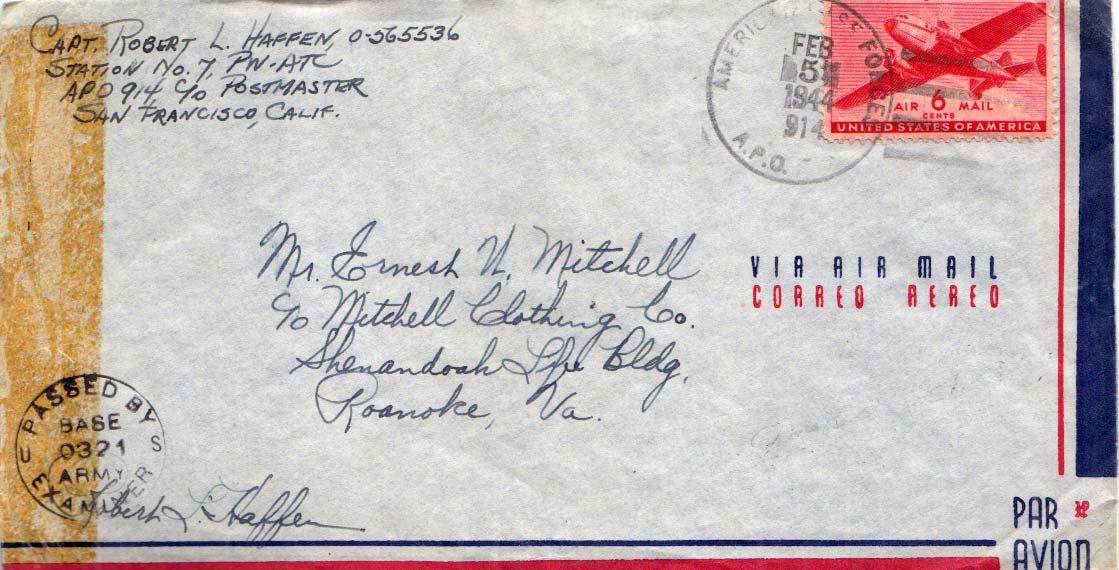 CAPT. ROBERT L. HAFFEN, O-565536
STATION No. 7, PW-ATC
APO 914 c/o POSTMASTER
SAN FRANCISCO, CALIF.
FORCES
FEB
5
1944
914
A.P.O.
AIR 6 MAIL
CENTS
UNITED STATES OF AMERICA
Mr. Ernest W. Mitchell
c/o Mitchell Clothing Co.
Shenandoah Life Bldg.
Roanoke, Va.
VIA AIR MAIL
CORREO AEREO
U PASSED BY S
BASE
0321
ARMY
EXAMINER
Robert L. Haffen
PAR
AVION